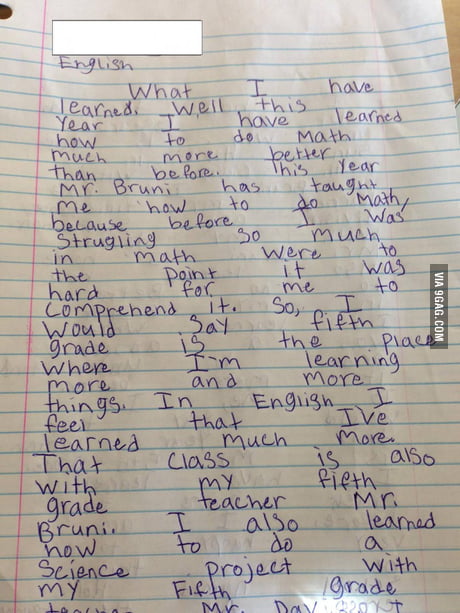 English
What I have
learned. Well this
Year I have learned
how to do Math
much more better
than before. This Year
Mr. Bruni has taught
me how to do Math,
because before I was
Strugling so much
in math were to
the point it was
hard for me to
Comprehend it. So, I
would say fifth
grade is the place
where I'm learning
more and more
things. In English I
feel that I've
learned much more.
That class is also
with my fifth
grade teacher Mr.
Bruni. I also learned
how to do a
Science project with
my Fifth grade
Mr.
VIA 9GAG.COM